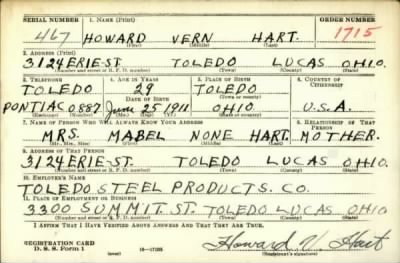 SERIAL NUMBER 1. NAME (Print) ORDER NUMBER
467 HOWARD VERN HART. 1715
(First) (Middle) (Last)
2. ADDRESS (Print)
3124 ERIE ST. TOLEDO LUCAS OHIO.
(Number and street or R. F. D. number) (Town) (County) (State)
3. TELEPHONE 4. AGE IN YEARS 5. PLACE OF BIRTH 6. COUNTRY OF CITIZENSHIP
TOLEDO 29 TOLEDO
DATE OF BIRTH (Town or county)
PONTIAC 0887 25 1911 OHIO. U.S.A.
(Mo.) (Day) (Yr.) (State or country)
7. NAME OF PERSON WHO WILL ALWAYS KNOW YOUR ADDRESS 8. RELATIONSHIP OF THAT PERSON
MRS. MABEL NONE HART. MOTHER.
(Mr., Mrs., Miss) (First) (Middle) (Last)
9. ADDRESS OF THAT PERSON
3124 ERIE ST. TOLEDO LUCAS OHIO.
(Number and street or R. F. D. number) (Town) (County) (State)
10. EMPLOYER'S NAME
TOLEDO STEEL PRODUCTS. CO.
11. PLACE OF EMPLOYMENT OR BUSINESS
3300 SUMMIT. ST. TOLEDO LUCAS OHIO
(Number and street or R. F. D. number) (Town) (County) (State)
I AFFIRM THAT I HAVE VERIFIED ABOVE ANSWERS AND THAT THEY ARE TRUE.
REGISTRATION CARD
D. S. S. Form 1 16—17105 Howard V. Hart
(Registrant's signature)